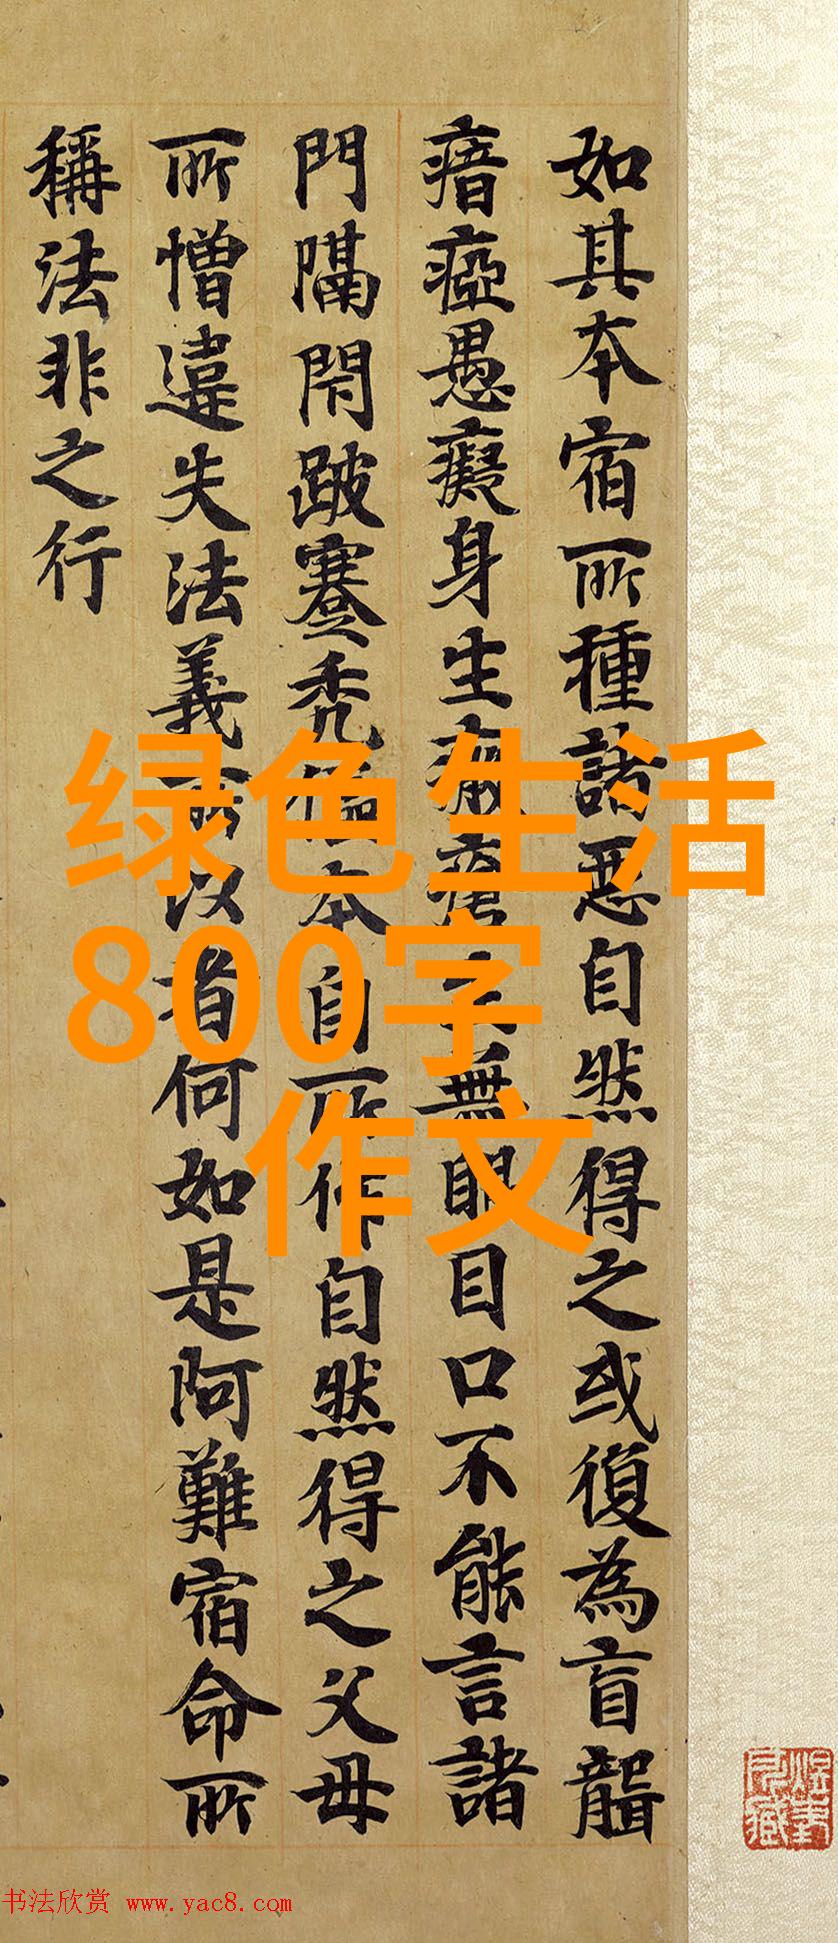 如其本宿所種諸惡自然得之或復為盲聾
瘖瘂愚癡身生無眼目口不能言諸
門隔閇跛蹇秃傴本自所作自然得之父母
所憎違失法義所以者何如是阿難宿命所
稱法非之行
绿色生活
800字
作文
书法欣赏 www.yac8.com